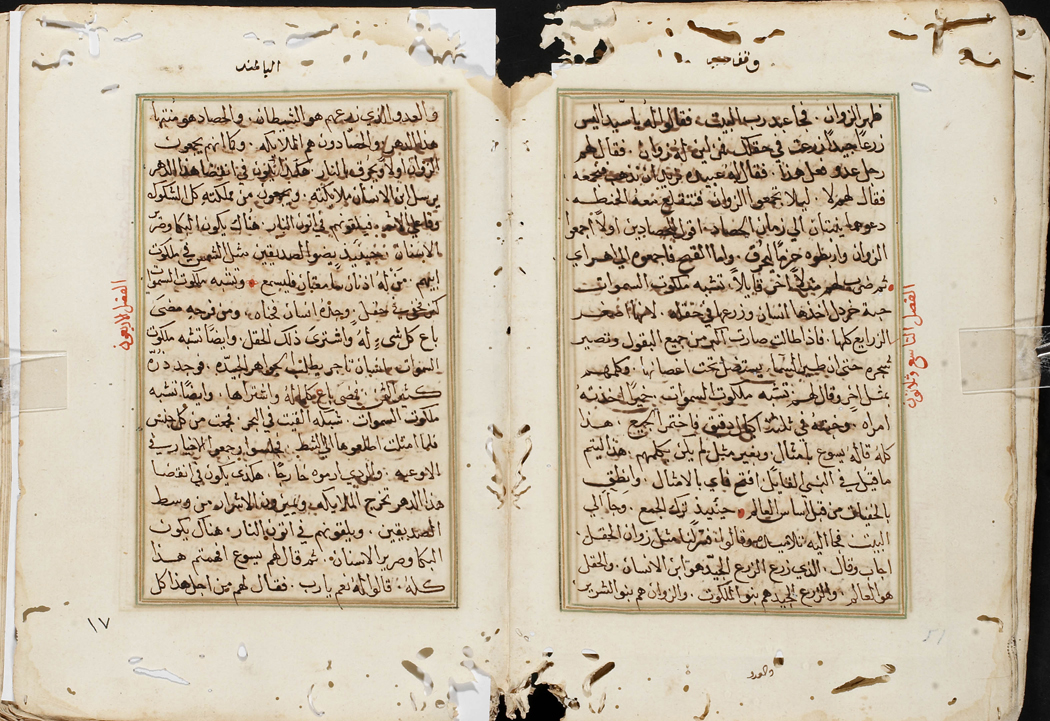 وقف حبس
ظهر الزوان . فجا عبيد رب البيت ، فقالوا له يا سيد اليس
زرعا جيدا زرعت في حقلك فمن اين له الزوان . فقال لهم
رجل عدو فعل هذا . فقال له عبيده تريد ان نذهب فنجمعه
فقال لهم لا . ليلا تجمعوا الزوان فتقتلع معه الحنطه .
دعوهما ينبتان الي زمان الحصاد . اقول للحصادين اولا اجمعوا
الزوان واربطوه حزما ليحرق . واما القمح فاجمعوه الي اهراي
ثم ضرب لهم مثلا اخر قايلا . تشبه ملكوت السموات
حبة خردل اخذها انسان وزرعها في حقله . لانها اصغر
الزراريع كلها . فاذا طالت صارت اكبر من جميع البقول وتصير
شجره حتي ان طير السما يستظل تحت اغصانها . وكلمهم
بمثل اخر وقال لهم تشبه ملكوت السموات خميرا اخذته
امراه . وخبته في ثلثة اكيال دقيق فاختمر الجميع . هذا
كله قاله يسوع بامثال . وبغير مثل لم يكن يكلمهم . هذا ليتم
ما قيل في النبي القايل افتح فاي بالامثال . وانطق
بالخفيات من قبل اساس العالم حينيذ ترك الجمع . وجا الي
البيت فجا اليه تلاميذه وقالوا فسر لنا مثل زوان الحقل .
اجاب وقال . الذي زرع الزرع الجيد هو ابن الانسان . والحقل
هو العالم . والزرع الجيد هم بنوا الملكوت . والزوان هم بنوا الشرير
الفصل التاسع وثلاثون
والعدو
الباعند
والعدو الذي زرعهم هو الشيطان . والحصاد هو منتها
هذا الدهر والحصادون هم الملايكه . وكما انهم يجمعون
الزوان اولا ويحرق بالنار . هكذا يكون في انقضا هذا الدهر
يرسل ابن الانسان ملايكته . ويجمعون من مملكته كل الشكوك
وفاعلي الاثم فيلقونهم في اتون النار . هناك يكون البكا وصرير
الاسنان . حينيذ يضو الصديقين مثل الشمس في ملكوت
ابيهم . من له اذنان سامعتان فليسمع . وتشبه ملكوت السموا
كنز مخفي في حقل . وجده انسان فخباه . ومن فرحه مضي
باع كل شي له واشتري ذلك الحقل . وايضا تشبه ملكوت
السموات بانسان تاجر يطلب الجواهر الجيده . فوجد دره
كثيرة الثمن فمضي باع كلما له واشتراها . وايضا تشبه
ملكوت السموات شبكه القيت في البحر فجمعت من كل جنس
فلما امتلت اطلعوها الي الشط . فجلسوا وجمعوا الاخيار في
الاوعيه . والردي رموه خارجا . هكذي يكون في انقضا
هذا الدهر تخرج الملايكه ويميزون الاشرار من وسط
الصديقين . ويلقونهم في اتون النار . هناك يكون
البكا وصرير الاسنان . ثم قال لهم يسوع افهمتم هذا
كله . قالوا له نعم يا رب . فقال لهم من اجل هذا كل
الفصل الاربعون
١٧